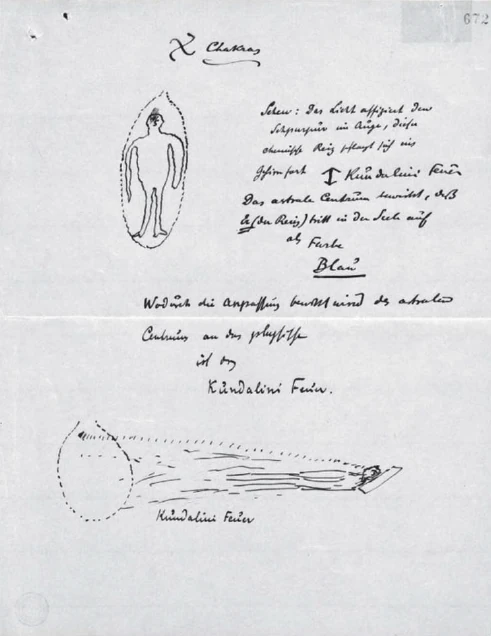 672
X Chakras
Sehen: Das Licht affiziert den
Sehpurpur im Auge, dieser
chemische Reiz pflanzt sich ins
Gehirn fort ↕ Kundalini Feuer
Das astrale Centrum bewirkt, daß
er (der Reiz) tritt in der Seele auf
als Farbe
Blau
Wodurch die Anpassung bewirkt wird des astralen
Centrums an das physische
ist das
Kundalini Feuer.
Kundalini Feuer